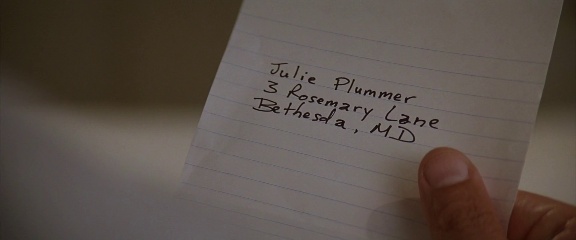 Julie Plummer
3 Rosemary Lane
Bethesda, MD